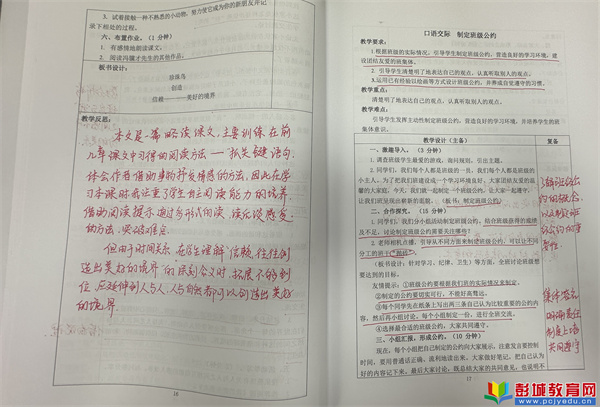 3. 试着接触一种不熟悉的小动物，努力使它成为你的新朋友并记
录下相处的过程。
六、布置作业。（1 分钟）
1. 有感情地朗读课文。
2. 阅读冯骥才先生的其他作品。
板书设计：
珍珠鸟
创造
信赖————美好的境界
教学反思：
本文是一篇略读课文，主要训练在前
几年课文中习得的阅读方法——"抓关键语句，
体会作者借助事物抒发情感的方法，因此在学
习本课时我注重了学生自主阅读能力的培养，
借助阅读提示通过多形式的读、读后谈感受
的方法，突破难点
但由于时间关系，在学生理解"信赖，往往创
造出美好的境界"的深刻含义时，拓展不够到
位，应延伸到人与人、人与自然都可以创造出美好
的境界
18
口语交际 制定班级公约
教学要求：
1.根据班级的实际情况，引导学生制定班级公约，营造良好的学习环境，建
设团结友爱的班集体。
2. 引导学生清楚明了地表达自己的观点，认真听取别人的观点。
3.运用已有经验以绘画等方式设计班级公约，并养成自觉遵守的习惯。
教学重点：
清楚明了地表达自己的观点，认真听取别人的观点。
教学难点：
引导学生发挥主动性制定班级公约，营造良好的学习环境，并培养学生的班
集体意识。
教学设计（主备）
复备
一、激趣导入。（3 分钟）
1. 请查班级学生最爱的游戏，做问规则，引出主题。
2. 同学们，我们每个人都是班级的一员，我们每个人都是我们班级的小
主人，为了把我们班建设成一个学习环境良好，大家团结友爱的温
馨的大家庭，今天，我们就一起制定一个班级公约，让大家一起遵守，
让我们班呈现出崭新的面貌。（板书：制定班级公约）
二、合作探究。（15 分钟）
1. 同学们，我们分小组活动制定班级公约，结合班级获得的成绩
及不足，讨论制定班级公约需要关注哪些？
2. 老师相机点播，引导从不同方面来制定班级公约，可以让不同
分工的班干"献话"。
（板书设计：针对学习，纪律，卫生）等方面，全班讨论班级想
要达到的目标。
友情提示：①班级公约要根据我们班的实际情况来制定。
②制定的公约要切实可行，不能好高骛远。
③每个同学先在纸条上写出两三条自己认为比较重要的公约内
容，然后再小组讨论，每个小组制定一份，进行全班交流。
④选择最合适的班级公约，大家共同遵守。
三、小组汇报，形成公约。（10 分钟）
现在，每个小组把自己制定的公约向大家展示，注意发言要控制
时间，要用普通话正确、流利地读出来。大家做好笔记，把自己认为
好的内容记下来，最后大家讨论，既总结大家的共同意见，也说明不
17
彭城教育网
www.pcjyedu.cn